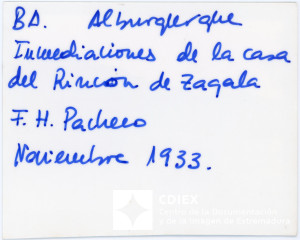 BA. Alburquerque
Inmediaciones de la casa
del Rincón de Zagala
F. H. Pacheco
Noviembre 1933.
CDIEX